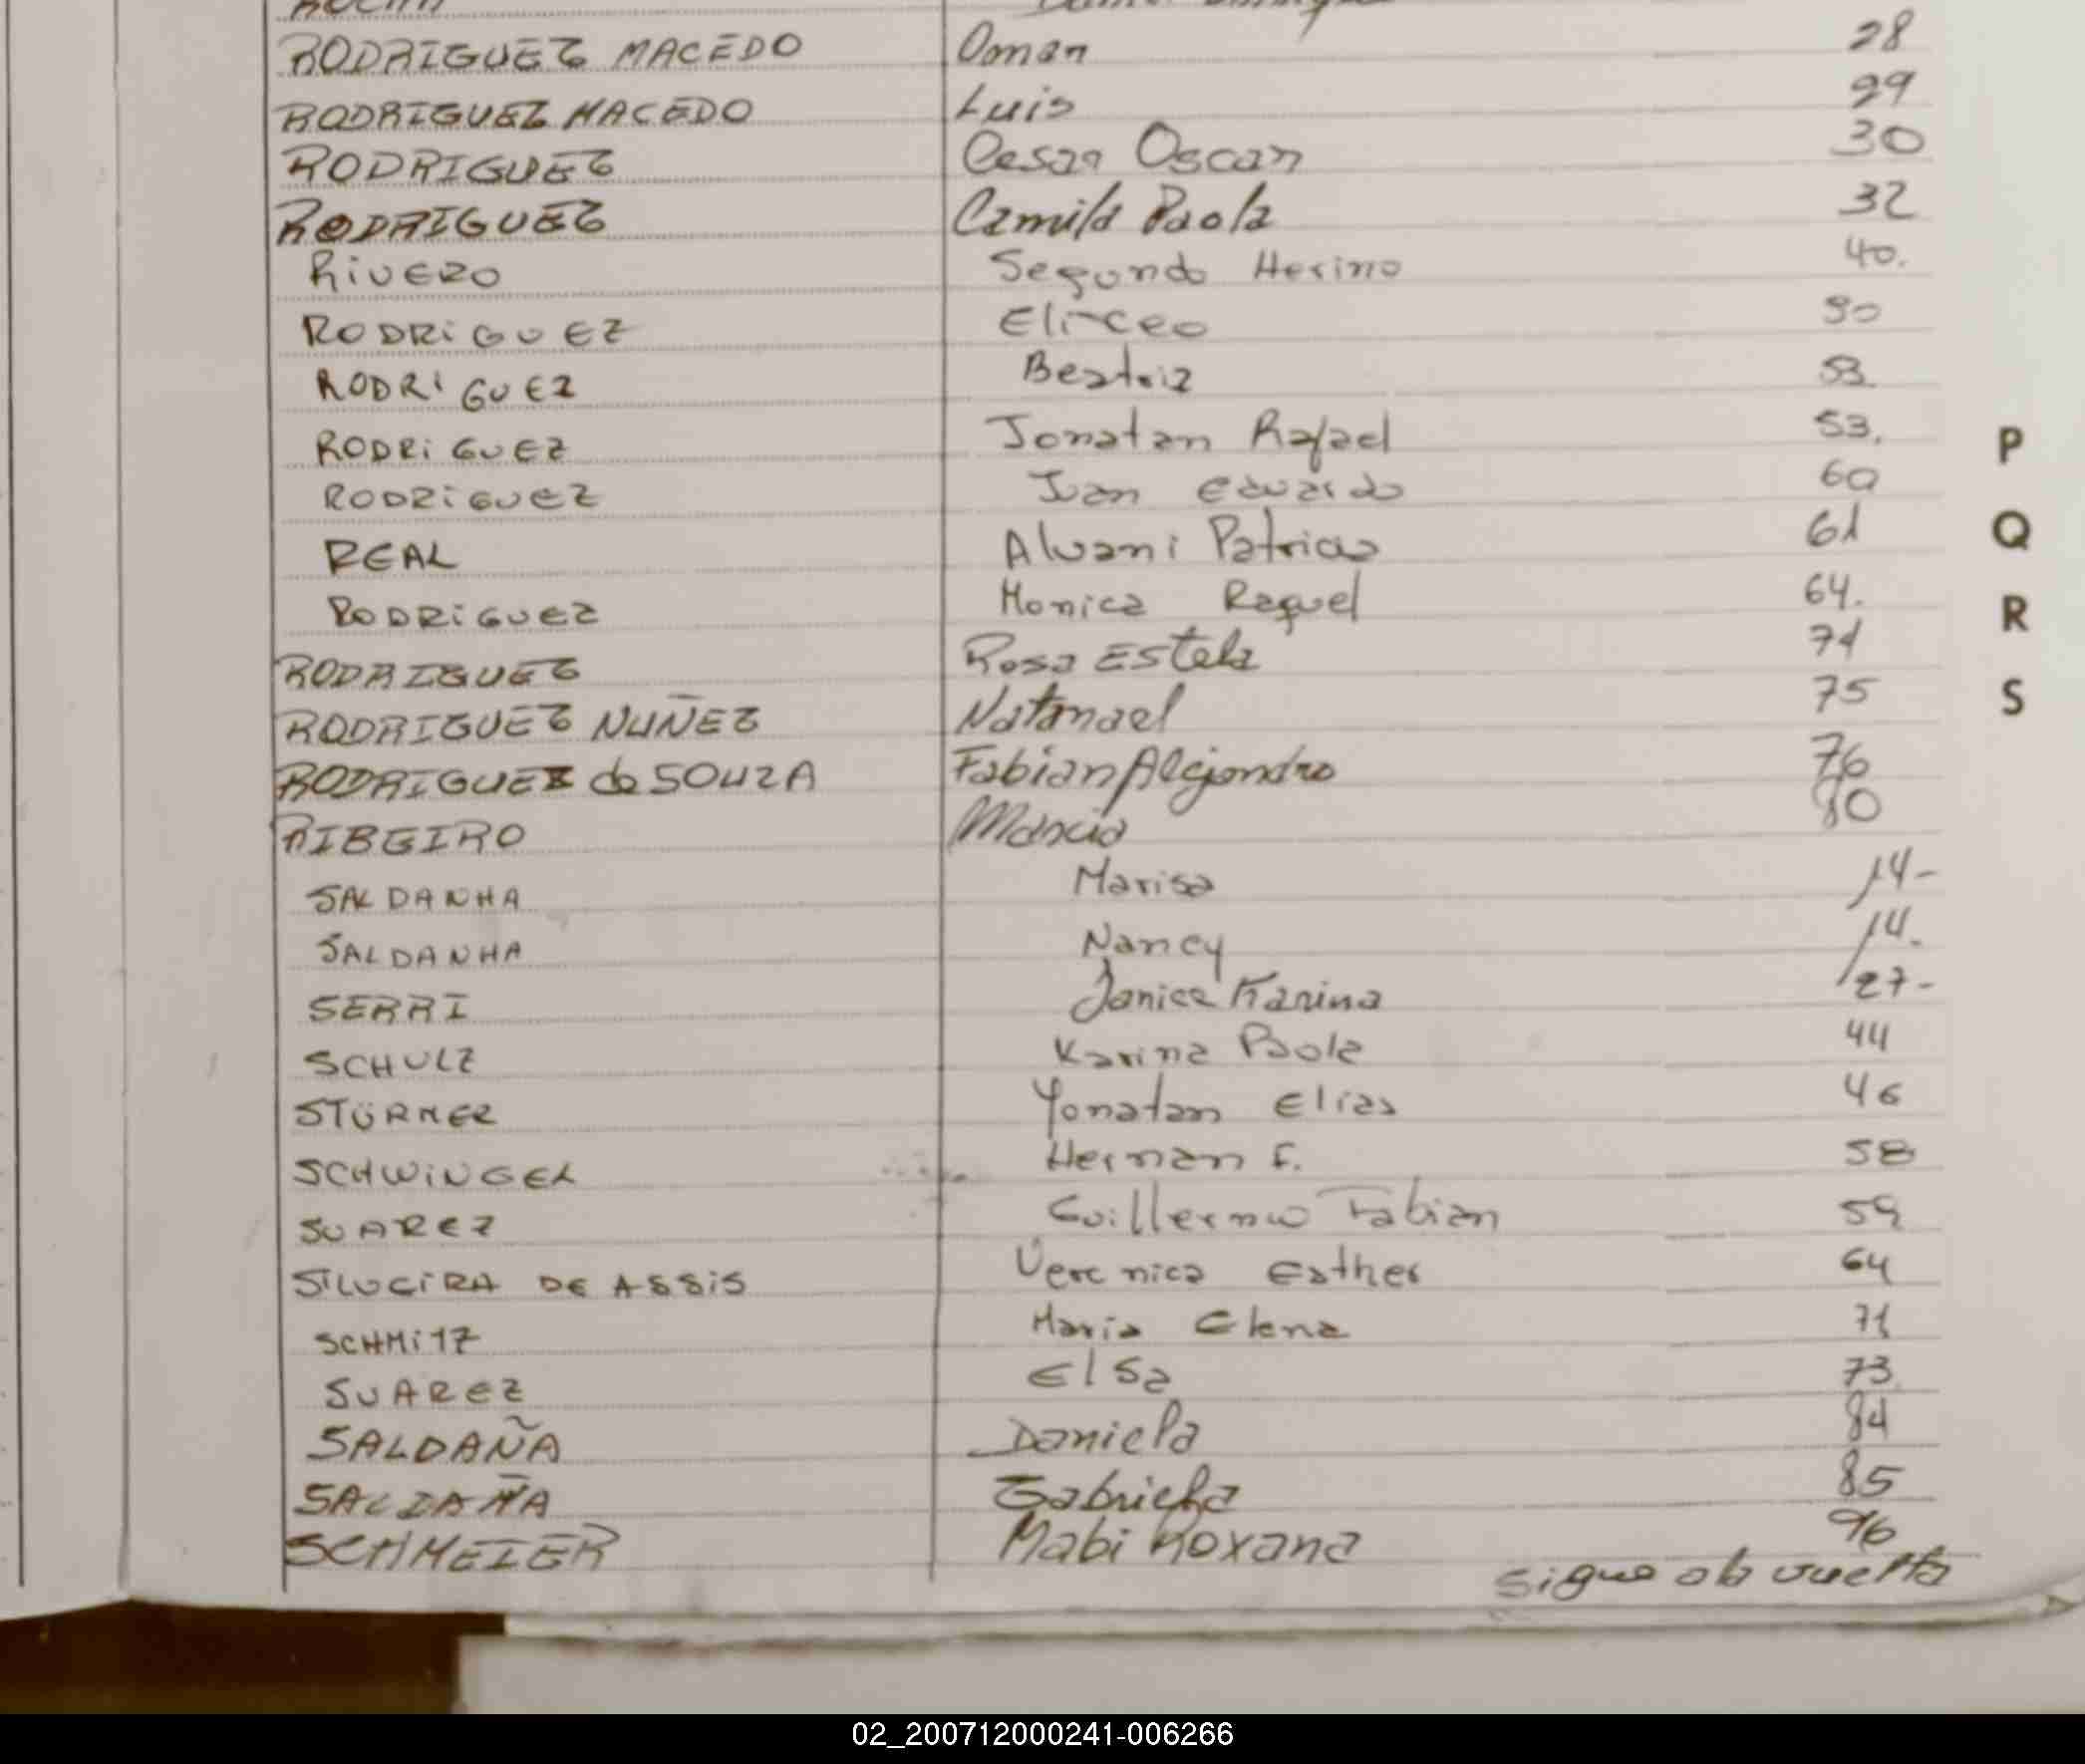 RODRIGUEZ MACEDO Omar 28
RODRIGUEZ MACEDO Luis 29
RODRIGUEZ Cesar Oscar 30
RODRIGUEZ Camila Paola 32
RIVERO Segundo Herino 40.
RODRIGUEZ Eliceo 50
RODRIGUEZ Beatriz 53
RODRIGUEZ Jonatan Rafael 53.
RODRIGUEZ Juan Eduardo 60
REAL Alvani Patricio 61
RODRIGUEZ Monica Raquel 64.
RODRIGUEZ Rosa Estela 71
RODRIGUEZ NUÑEZ Natanael 75
RODRIGUEZ de SOUZA Fabian Alejandro 76
RIBEIRO Marcia 80
SALDANHA Marisa 14-
SALDANHA Nancy 14.
SERRI Janice Karina 27-
SCHULZ Karina Paola 44
STÜRMER Yonatan Elias 46
SCHWINGEL Hernan F. 58
SUAREZ Guillermo Fabian 59
SILVEIRA DE ASSIS Veronica Esther 64
SCHMITZ Maria Elena 71
SUAREZ Elsa 73
SALDAÑA Daniela 84
SALDAÑA Gabriela 85
SCHMEIER Mabi Roxana 96
Sigue a la vuelta
P
Q
R
S
02_200712000241-006266